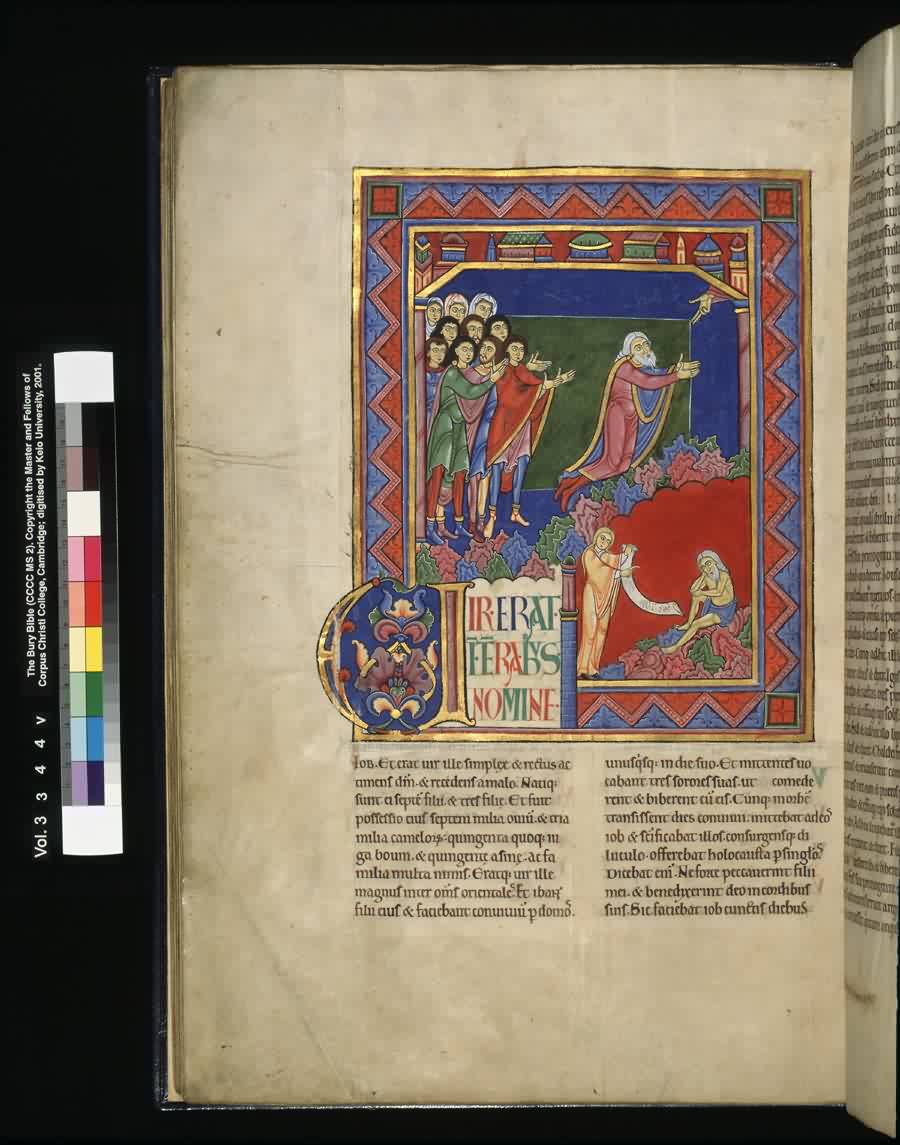 The Bury Bible (CCCC MS 2). Copyright the Master and Fellows of
Corpus Christi College, Cambridge; digitised by Keio University, 2001,
Vol. 3 3 4 4 V
VIR ERAT
ĪTERA hVS
NOMINE·
Iob. Et erat uir ille simplex & rectus ac
timens dm̄. & recedens a malo. Natiq;
sunt ei septē filii. & tres filię. Et fuit
possessio eius septem milia ouiū. & tria
milia camelorꝝ. quingenta quoq; iu
ga boum. & quingentę asinę. ac fa
milia multa nimis. Eratq; uir ille
magnus inter om̄s orientales. Et ibant
filii eius & faciebant conuiuiū p̱ domos.
unusq̇sq; in die suo. Et mittentes uo
cabant tres sorores suas. ut comede
rent & biberent cū eis. Cunq; in orbē
transissent dies conuiuii. mittebat ad eos
iob & sc̄ificabat illos. consurgensq; di
luculo. offerebat holocausta p̱ singlos.
Dicebat enī. Ne forte peccauerint filii
mei. & benedixerint deo in cordibus
suis. Sic faciebat iob cunctis diebus